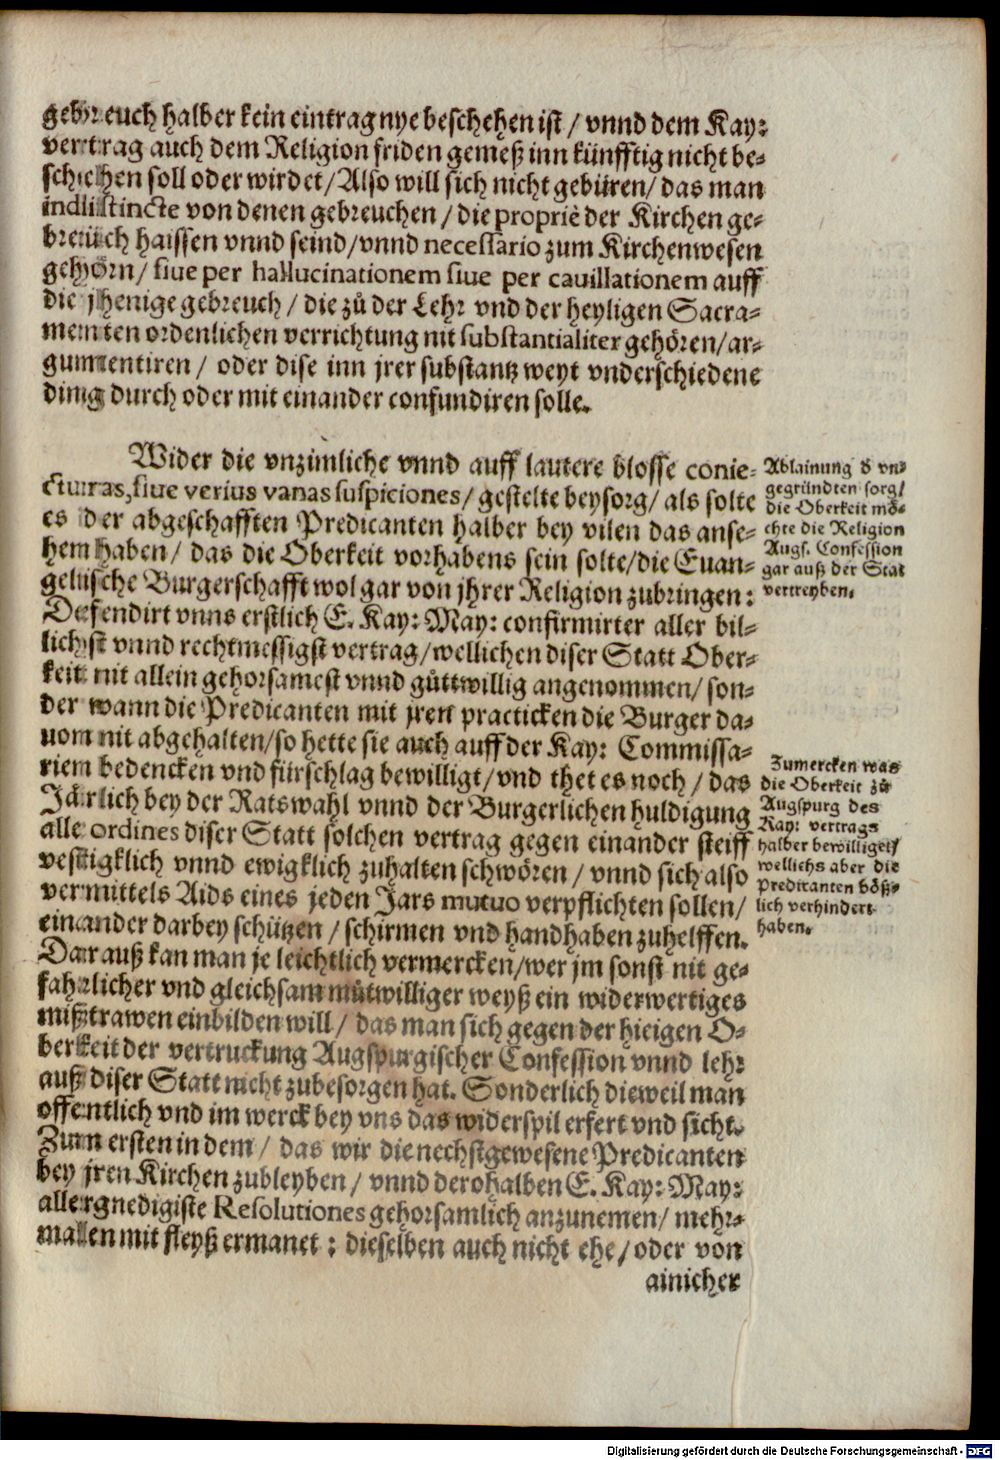 gebreuch halber kein eintrag nye beschehen ist / vnnd dem Kay:
vertrag auch dem Religion friden gemeß inn künfftig nicht be-
schehen soll oder wirdet / Also will sich nicht gebüren / das man
indistincte von denen gebreuchen / die propriè der Kirchen ge-
breuch haissen vnnd seind / vnnd necessario zum Kirchenwesen
gehörn / siue per hallucinationem siue per cauillationem auff
die jhenige gebreuch / die zů der Lehr vnd der heyligen Sacra-
menten ordenlichen verrichtung nit substantialiter gehören / ar-
gumentiren / oder dise inn jrer substantz weyt vnderschiedene
ding durch oder mit einander confundiren solle.
Wider die vnzimliche vnnd auff lautere blosse conie-
cturas, siue verius vanas suspiciones / gestelte beysorg / als solte
es der abgeschafften Predicanten halber bey vilen das anse-
hem haben / das die Oberkeit vorhabens sein solte / die Euan-
gelische Burgerschafft wol gar von jhrer Religion zubringen:
Defendirt vnns erstlich E. Kay: May: confirmirter aller bil-
lichst vnnd rechtmessigst vertrag / wellichen diser Statt Ober-
keit nit allein gehorsamest vnnd gůttwillig angenommen / son-
der wann die Predicanten mit jren practicken die Burger da-
uom nit abgehalten / so hette sie auch auff der Kay: Commissa-
riem bedencken vnd fürschlag bewilligt / vnd thet es noch / das
Järlich bey der Ratswahl vnnd der Burgerlichen huldigung
alle ordines diser Statt solchen vertrag gegen einander steiff
vestigklich vnnd ewigklich zuhalten schwören / vnnd sich also
vermittels Aids eines jeden Jars mutuo verpflichten sollen /
einander darbey schützen / schirmen vnd handhaben zuhelffen.
Dar auß kan man je leichtlich vermercken / wer jm sonst nit ge-
fahrlicher vnd gleichsam můtwilliger weyß ein widerwertiges
mißtrawen einbilden will / das man sich gegen der hieigen O-
berkeit der vertruckung Augspurgischer Confession vnnd lehr
auß diser Statt nicht zubesorgen hat. Sonderlich dieweil man
offentlich vnd im werck bey vns das widerspil erfert vnd sicht.
Zum ersten in dem / das wir die nechstgewesene Predicanten
bey jren Kirchen zubleyben / vnnd derohalben E. Kay: May:
allergnedigiste Resolutiones gehorsamlich anzunemen / mehr-
malen mit fleyß ermanet : dieselben auch nicht ehe / oder von
ainicher
Ablainung d vn-
gegründten sorg /
die Oberkeit mö-
chte die Religion
Augs. Confession
gar auß der Stat
vertreyben.
Zumercken was
die Oberkeit zů
Augspurg des
Kay: vertrags
halber bewilliget /
wellichs aber die
Predicanten böß-
lich verhindert
haben.
Digitalisierung gefördert durch die Deutsche Forschungsgemeinschaft - DFG